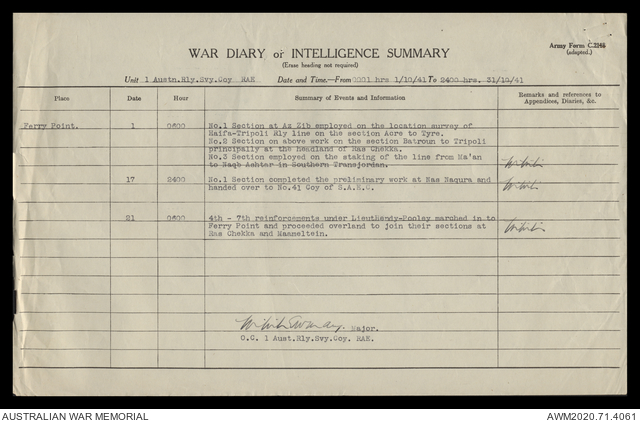 Army Form C.2348
(adapted.)
WAR DIARY or INTELLIGENCE SUMMARY
(Erase heading not required)
Unit 1 Austn.Rly.Svy.Coy RAE Date and Time.—From 0001 hrs 1/10/41 To 2400 hrs, 31/10/41
Place Date Hour Summary of Events and Information Remarks and references to
Appendices, Diaries, &c.
Ferry Point. 1 0600 No.1 Section at Az Zib employed on the location survey of
Haifa-Tripoli Rly line on the section Acre to Tyre.
No.2 Section on above work on the section Batroun to Tripoli
principally at the headland of Ras Chekka.
No.3 Section employed on the staking of the line from Ma'an
to Naqb Ashtar in Southern Transjordan.
17 2400 No.1 Section completed the preliminary work at Ras Naqura and
handed over to No.41 Coy of S.A.E.C.
21 0600 4th - 7th reinforcements under Lieut Hendy-Pooley marched in to
Ferry Point and proceeded overland to join their sections at
Ras Chekka and Maameltein.
Major.
O.C. 1 Aust.Rly.Svy.Coy. RAE.
AUSTRALIAN WAR MEMORIAL
AWM2020.71.4061